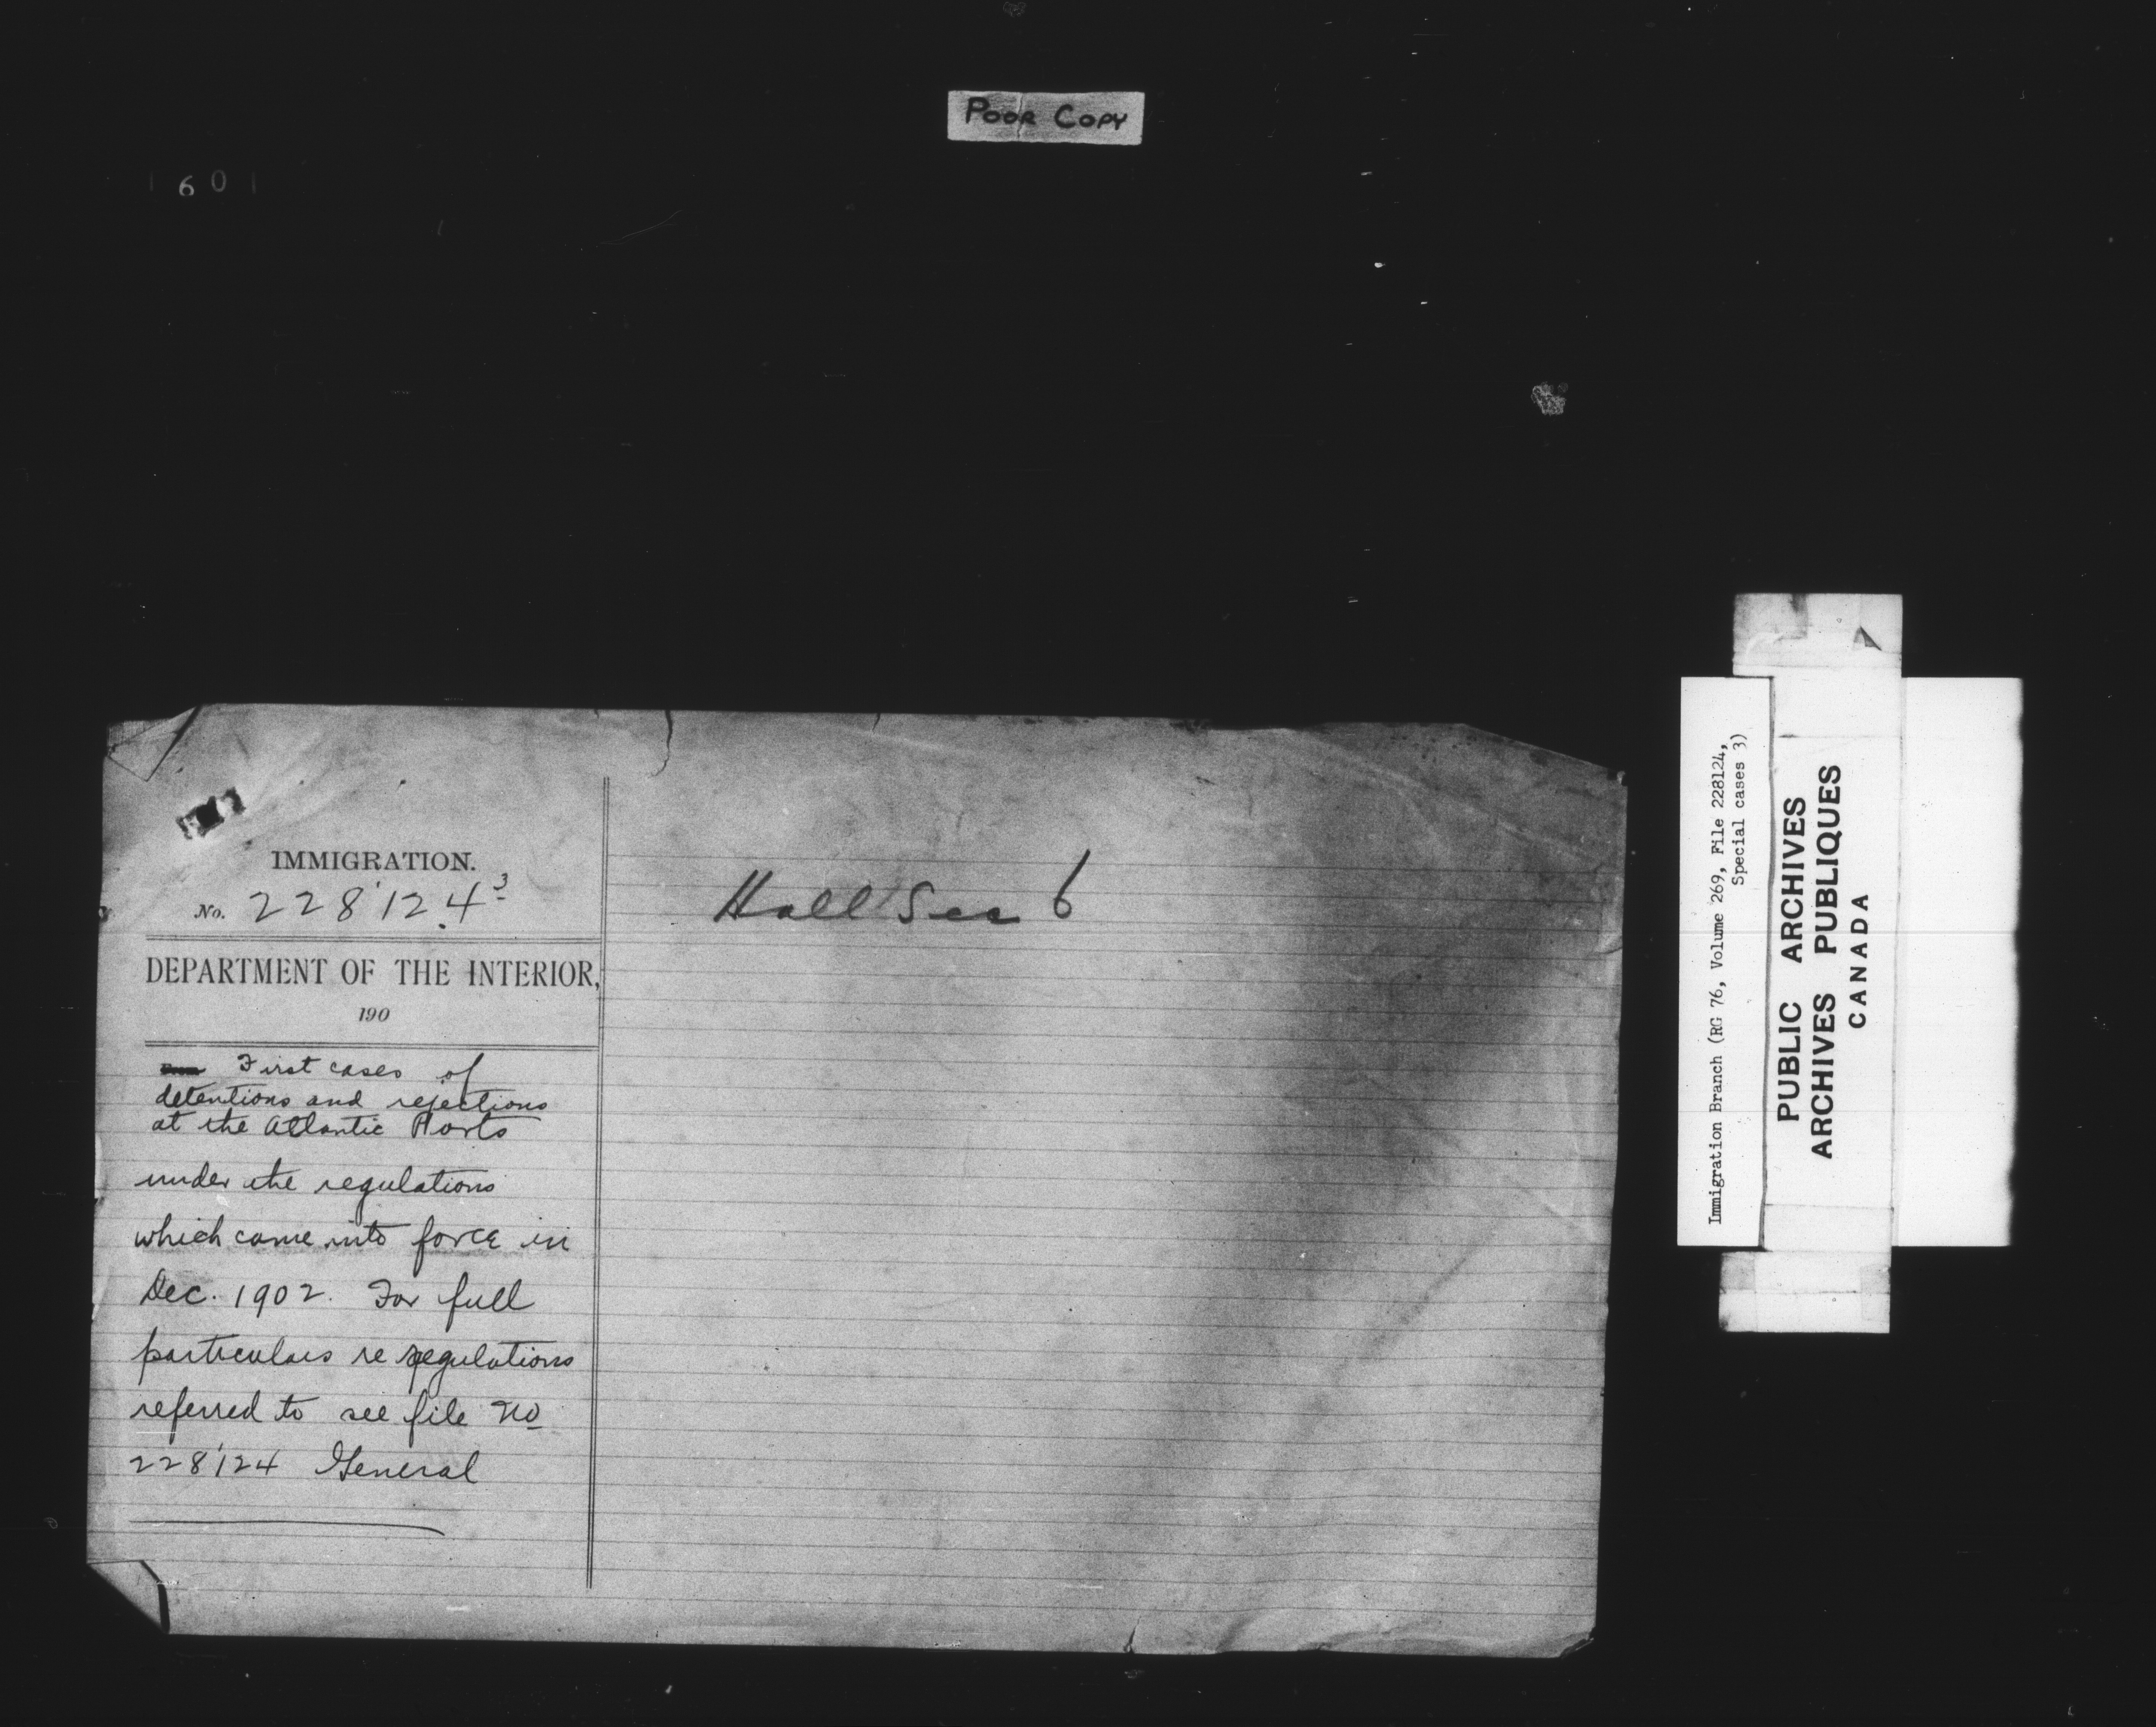 POOR COPY
1601
IMMIGRATION.
No. 228124³
DEPARTMENT OF THE INTERIOR,
190
First cases of
detentions and rejections
at the Atlantic Ports
under the regulations
which came into force in
Dec. 1902. For full
particulars re regulations
referred to see file No
228124 General
Hall Sec 6
Immigration Branch (RG 76, Volume 269, File 228124,
Special cases 3)
PUBLIC ARCHIVES
ARCHIVES PUBLIQUES
CANADA